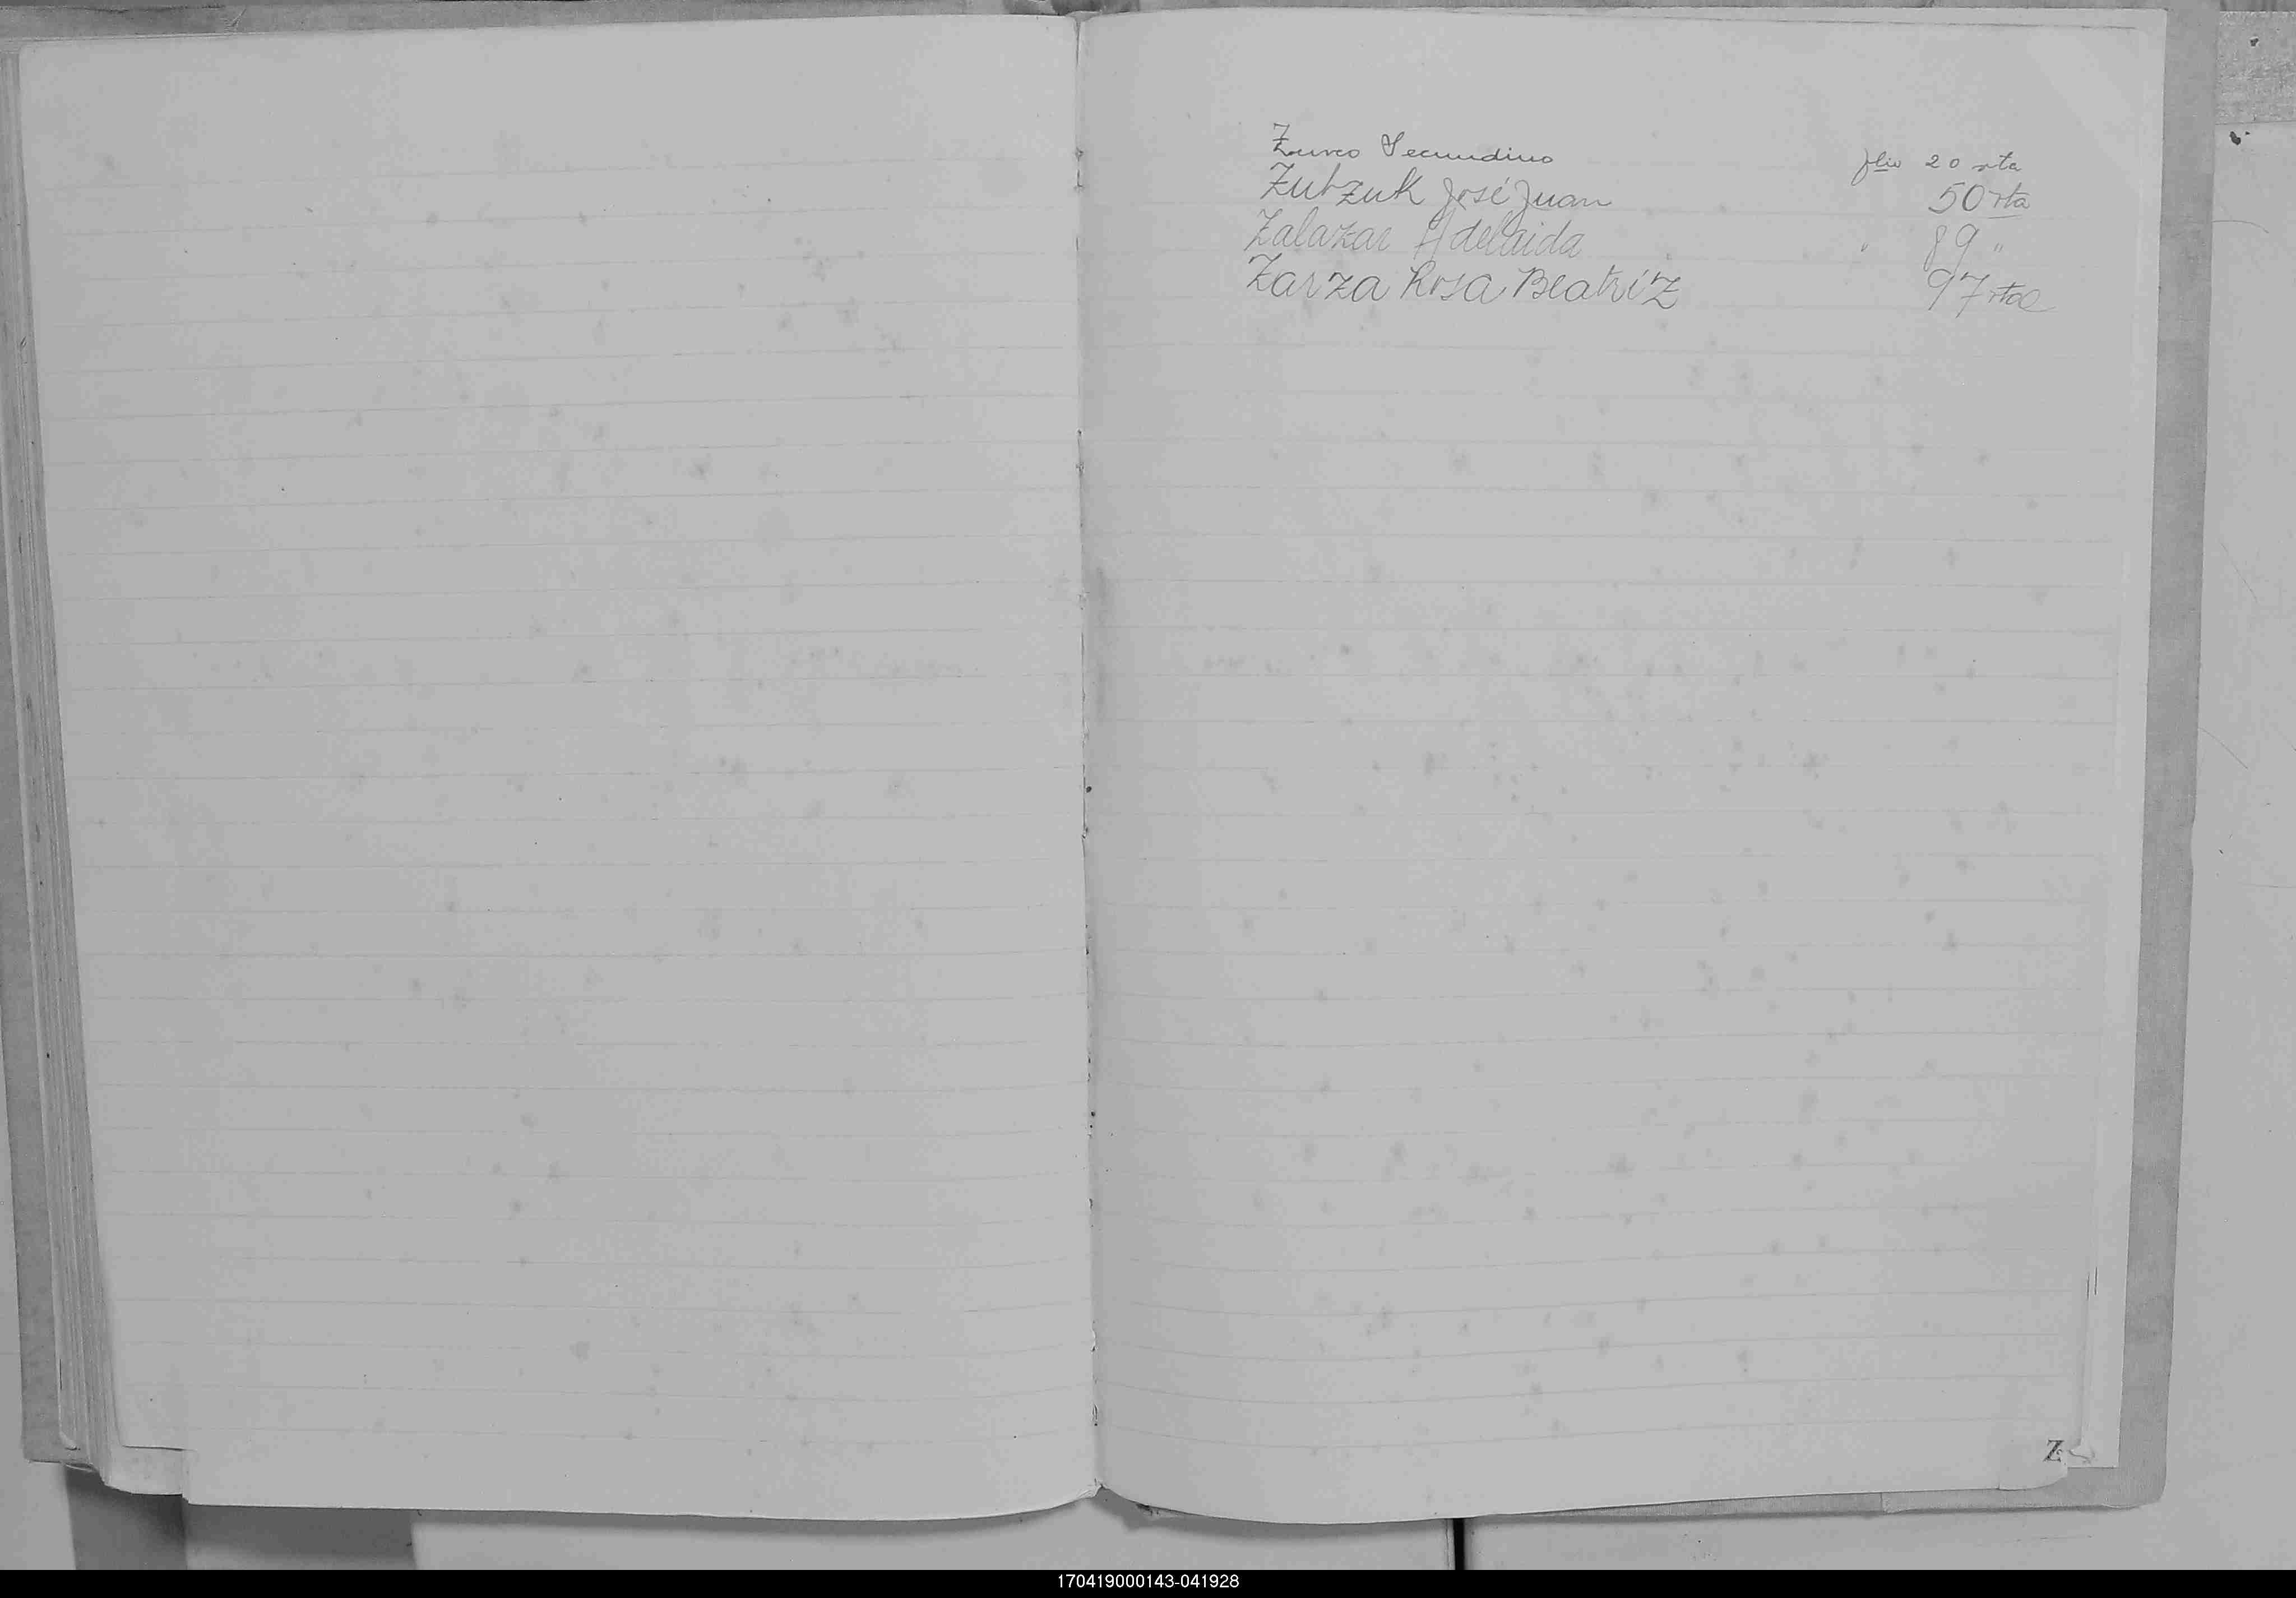 Zurco Secundino flio 20 vta
Zubzuk José Juan 50 vta
Zalazar Adelaida " 89 "
Zarza Rosa Beatriz 97 vta
Z
170419000143-041928